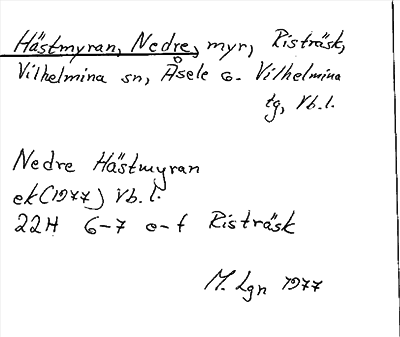 Hästmyran, Nedre, myr, Risträsk,
Vilhelmina sn, Åsele o. Vilhelmina
tg, Vb.l.
Nedre Hästmyran
ek(1977) Vb.l.
22H 6-7 e-f Risträsk
M. Lgn 1977